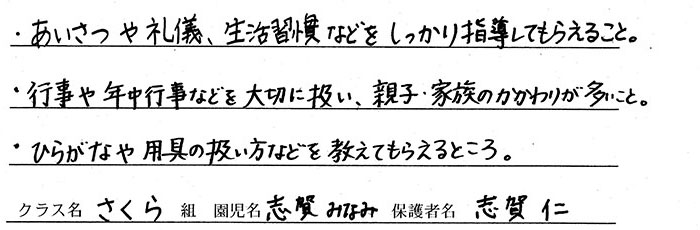 ・あいさつや礼儀、生活習慣などをしっかり指導してもらえること。
・行事や年中行事などを大切に扱い、親子・家族のかかわりが多いこと。
・ひらがなや用具の扱い方などを教えてもらえるところ。
クラス名 さくら 組 園児名 志賀 みなみ 保護者名 志賀 仁